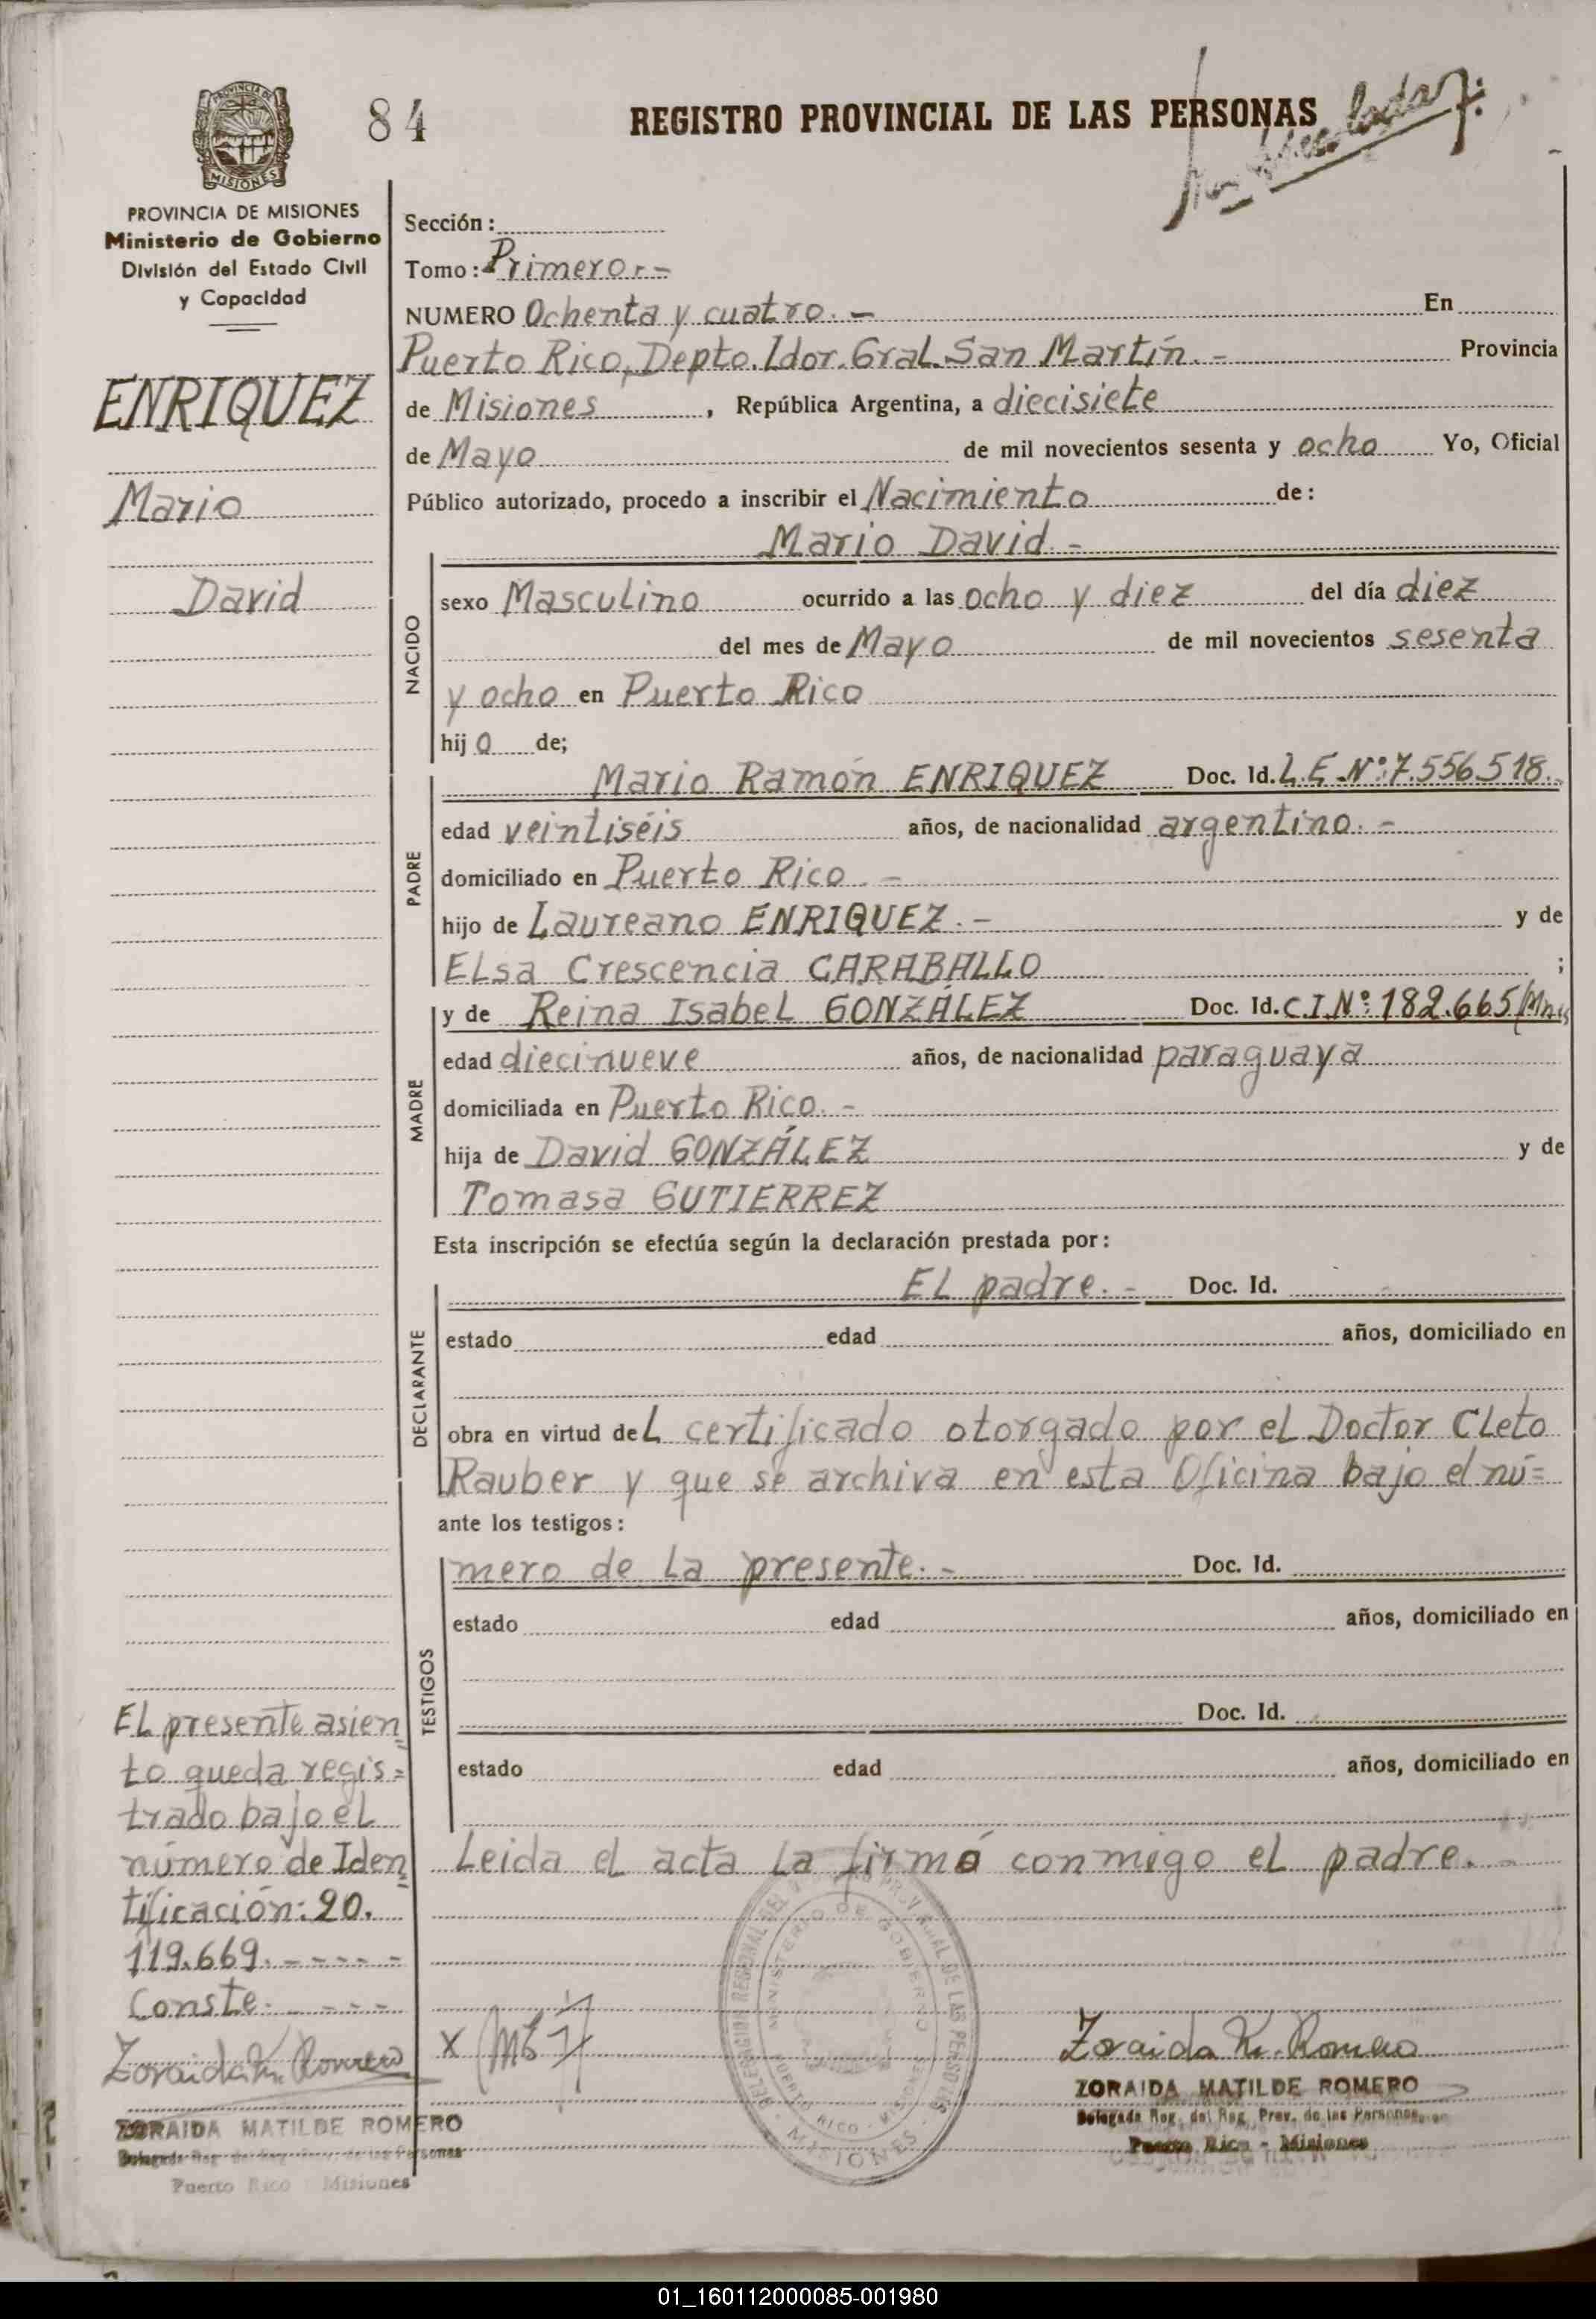 PROVINCIA DE
MISIONES
84
REGISTRO PROVINCIAL DE LAS PERSONAS
PROVINCIA DE MISIONES
Ministerio de Gobierno
División del Estado Civil
y Capacidad
ENRIQUEZ
Mario
David
Sección:
Tomo: Primero.-
NUMERO Ochenta y cuatro.- En
Puerto Rico, Depto. Ldor. Gral. San Martín.- Provincia
de Misiones, República Argentina, a diecisiete
de Mayo de mil novecientos sesenta y ocho Yo, Oficial
Público autorizado, procedo a inscribir el Nacimiento de:
Mario David.-
NACIDO
sexo Masculino ocurrido a las ocho y diez del día diez
del mes de Mayo de mil novecientos sesenta
y ocho en Puerto Rico
hijo de;
PADRE
Mario Ramón ENRIQUEZ Doc. Id. L.E.Nº:7.556.518.
edad veintiséis años, de nacionalidad argentino.-
domiciliado en Puerto Rico.-
hijo de Laureano ENRIQUEZ.- y de
Elsa Crescencia CARABALLO ;
MADRE
y de Reina Isabel GONZÁLEZ Doc. Id. C.I.Nº:182.665/Mnes
edad diecinueve años, de nacionalidad paraguaya
domiciliada en Puerto Rico.-
hija de David GONZÁLEZ y de
Tomasa GUTIERREZ
Esta inscripción se efectúa según la declaración prestada por:
DECLARANTE
El padre.- Doc. Id.
estado edad años, domiciliado en
obra en virtud del certificado otorgado por el Doctor Cleto
Rauber y que se archiva en esta Oficina bajo el nú=
ante los testigos:
TESTIGOS
mero de la presente.- Doc. Id.
estado edad años, domiciliado en
Doc. Id.
estado edad años, domiciliado en
Leida el acta la firmó conmigo el padre.-
El presente asien
to queda regis=
trado bajo el
número de Iden
tificación: 20.
119.669.-----
Conste.----
Zoraida M. Romero
ZORAIDA MATILDE ROMERO
Delegada Reg. de las Personas
Puerto Rico Misiones
X
DELEGACION REGIONAL DEL REG. PROVINCIAL DE LAS PERSONAS
MINISTERIO DE GOBIERNO
PUERTO RICO - MISIONES
MISIONES
Zoraida M. Romero
ZORAIDA MATILDE ROMERO
Delegada Reg. del Reg. Prov. de las Personas
Puerto Rico - Misiones
01_160112000085-001980